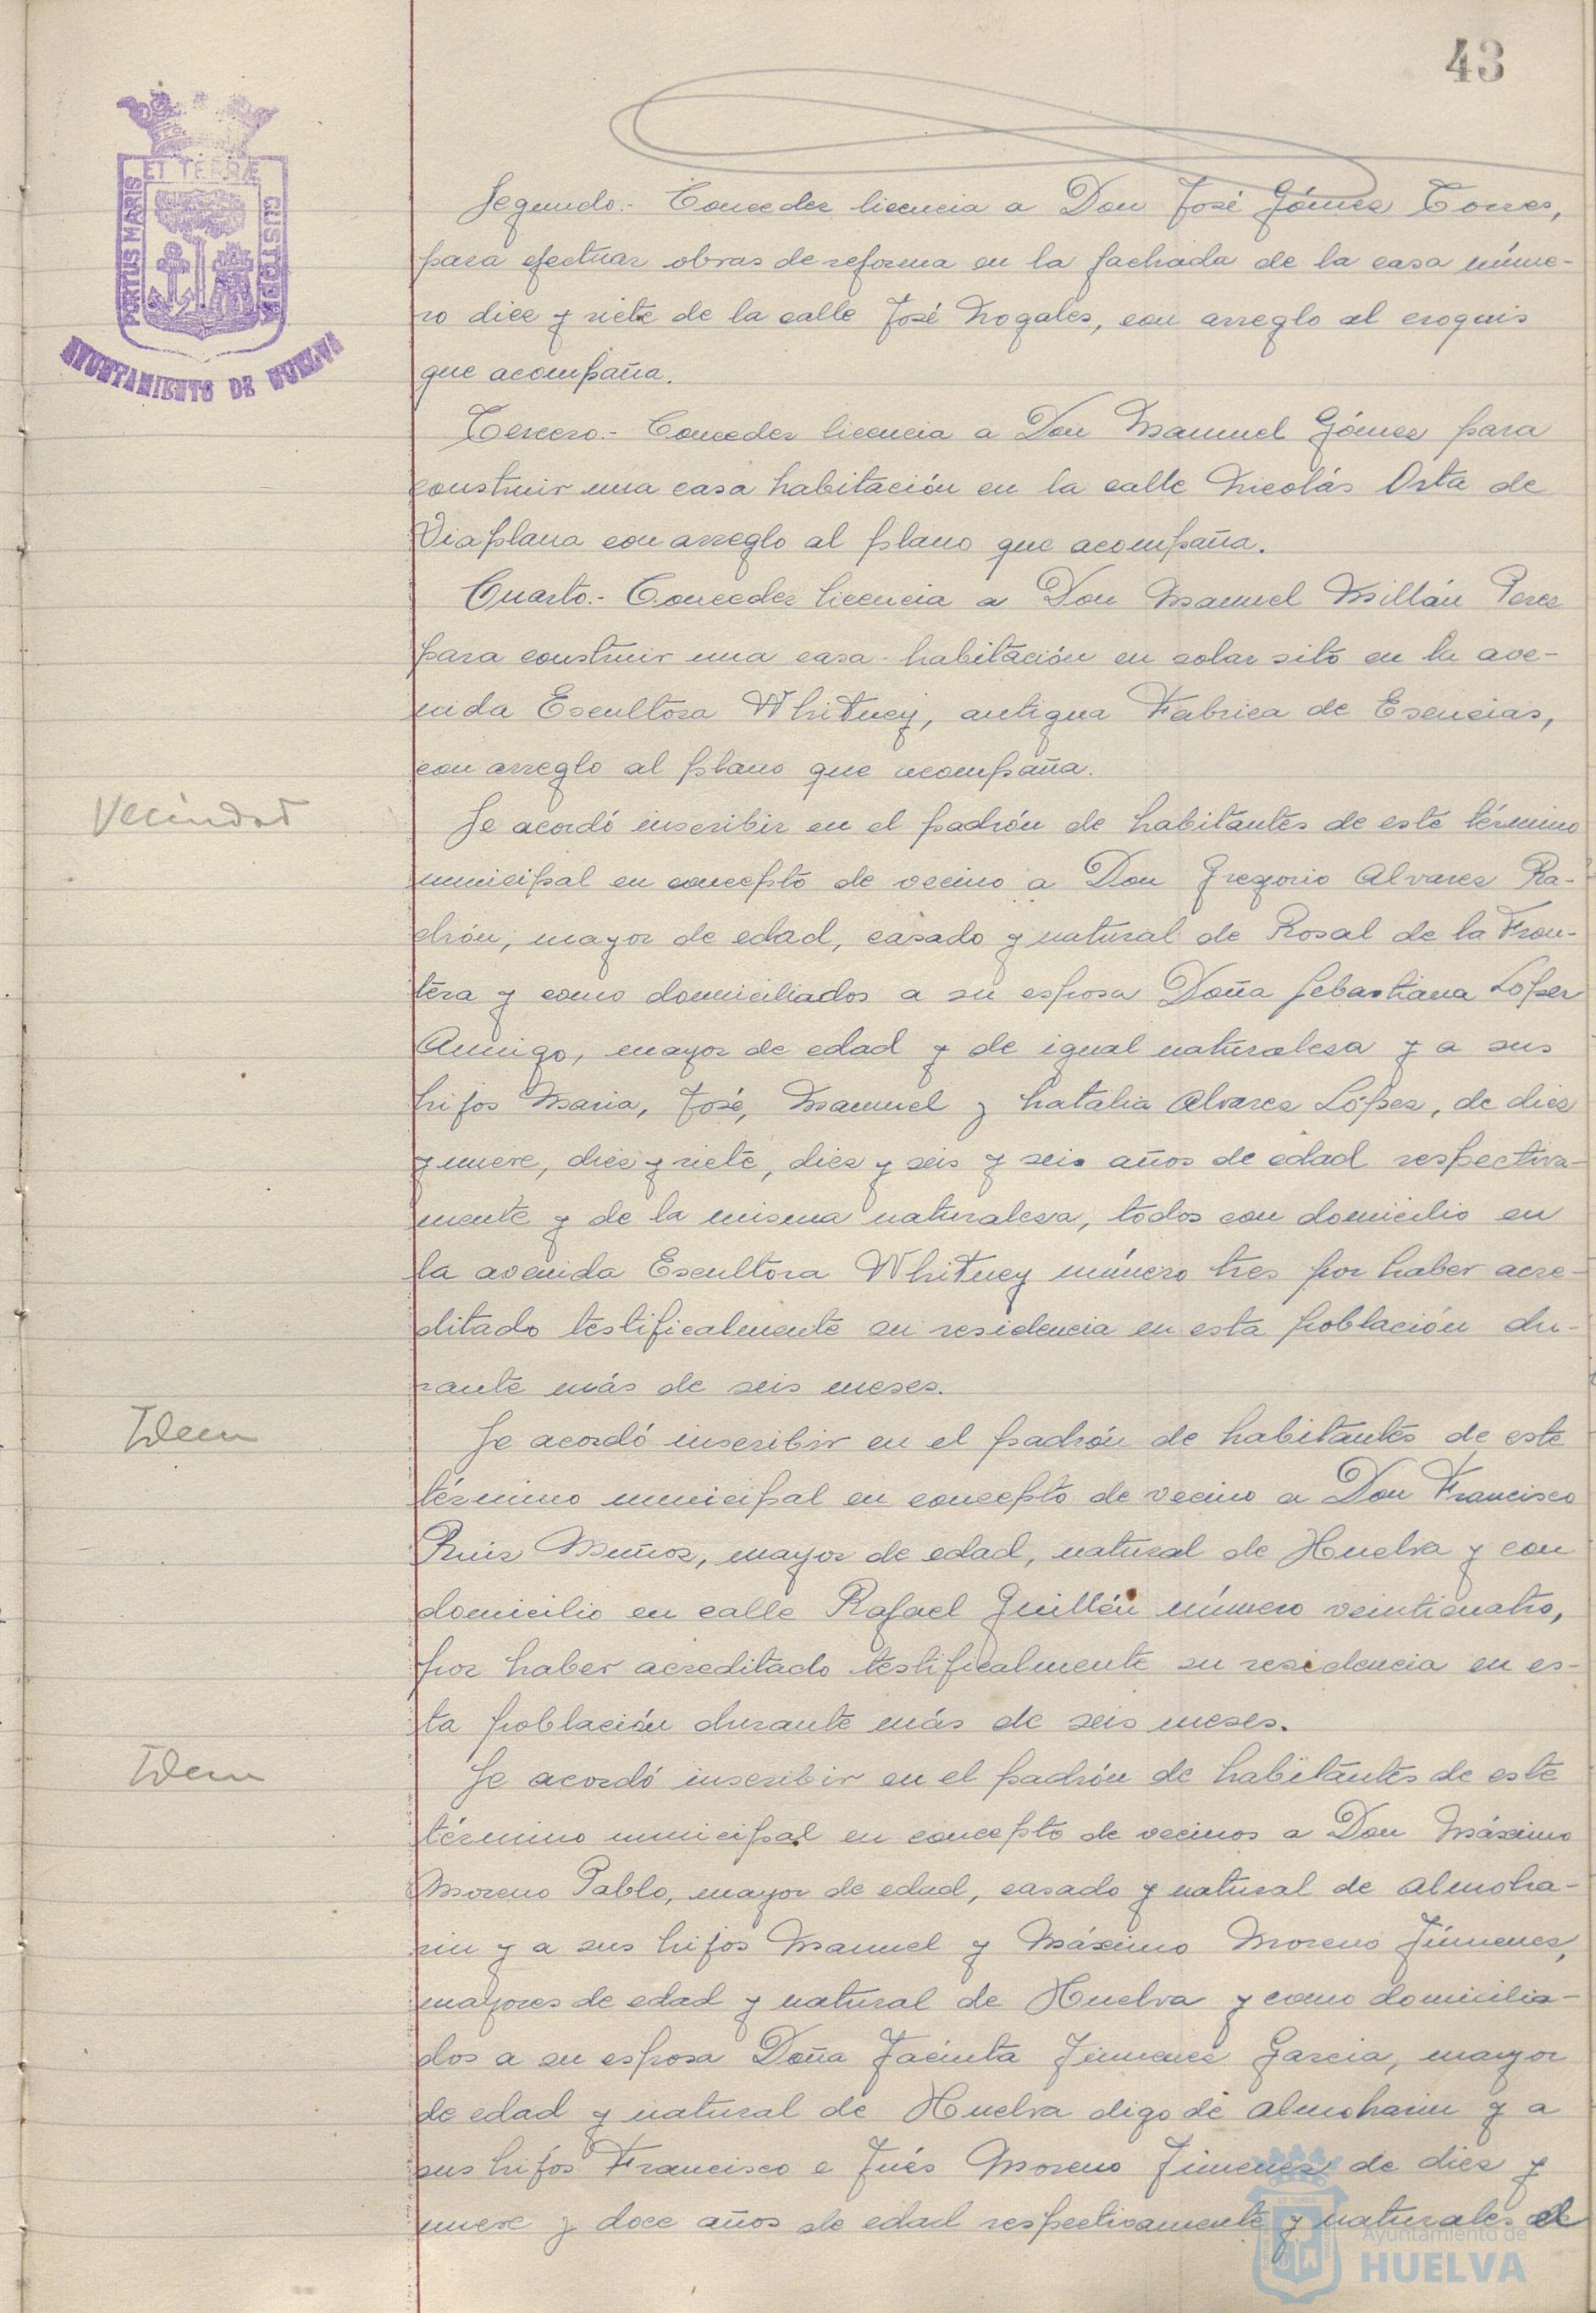 43
ET TERRÆ
PORTUS MARIS
CUSTODIA
AYUNTAMIENTO DE HUELVA
Segundo.- Conceder licencia a Don José Gómez Torres,
para efectuar obras de reforma en la fachada de la casa núme-
ro diez y siete de la calle José Nogales, con arreglo al croquis
que acompaña.
Tercero.- Conceder licencia a Don Manuel Gómez para
construir una casa habitación en la calle Nicolás Orta de
Viaplana con arreglo al plano que acompaña.
Cuarto.- Conceder licencia a Don Manuel Millán Perez
para construir una casa habitación en solar sito en la ave-
nida Escultora Whitney, antigua Fabrica de Esencias,
con arreglo al plano que acompaña.
Vecindad
Se acordó inscribir en el padrón de habitantes de este término
municipal en concepto de vecino a Don Gregorio Alvarez Ra-
món, mayor de edad, casado y natural de Rosal de la Fron-
tera y como domiciliados a su esposa Doña Sebastiana Lopez
mayor de edad y de igual naturaleza y a sus
hijos Maria, José, Manuel y Natalia Alvarez López, de diez
y nueve, diez y siete, diez y seis y seis años de edad respectiva-
mente y de la misma naturaleza, todos con domicilio en
la avenida Escultora Whitney número tres por haber acre-
ditado testificalmente su residencia en esta población du-
rante más de seis meses.
Idem
Se acordó inscribir en el padrón de habitantes de este
término municipal en concepto de vecino a Don Francisco
Ruiz Muñoz, mayor de edad, natural de Huelva y con
domicilio en calle Rafael Guillén número veinticuatro,
por haber acreditado testificalmente su residencia en es-
ta población durante más de seis meses.
Idem
Se acordó inscribir en el padrón de habitantes de este
término municipal en concepto de vecinos a Don Máximo
Moreno Pablo, mayor de edad, casado y natural de Almoha-
rin y a sus hijos Manuel y Máximo Moreno Jimenez,
mayores de edad y natural de Huelva y como domicilia-
dos a su esposa Doña Jacinta Jimenez Garcia, mayor
de edad y natural de Huelva digo de Almoharin y a
sus hijos Francisco e Inés Moreno Jimenez de diez y
nueve y doce años de edad respectivamente y naturales de
Ayuntamiento de
HUELVA